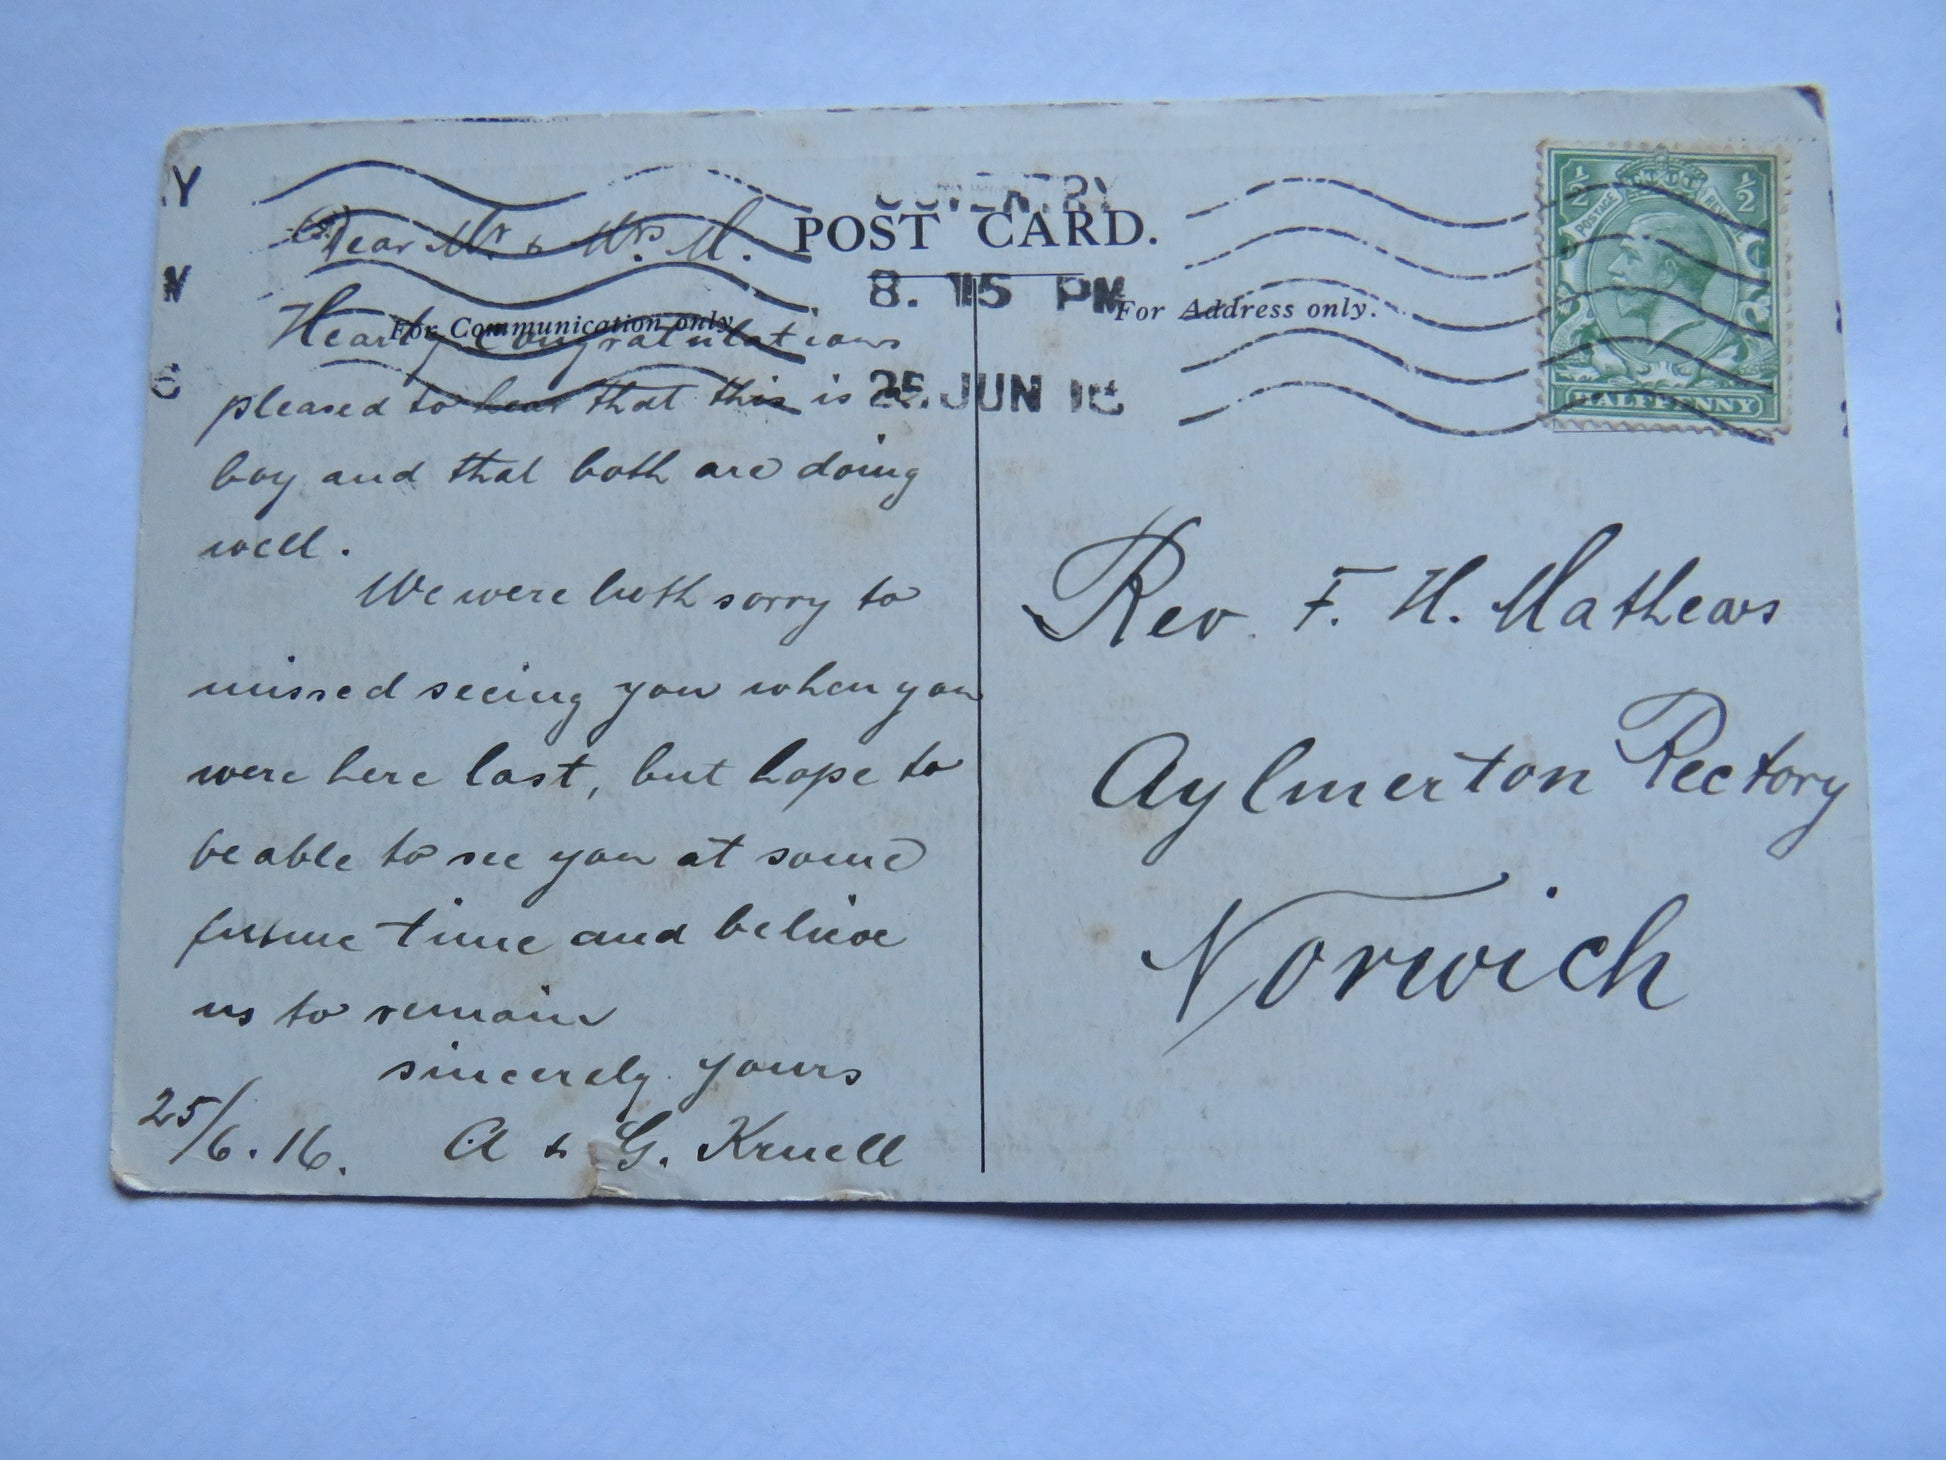 COVENTRY
POST CARD.
8. 15 PM
25 JUN 16
For Communication only.
For Address only.
Dear Mr & Mrs M.
Hearty Congratulations
pleased to hear that this is a
boy and that both are doing
well.
We were both sorry to
missed seeing you when you
were here last, but hope to
be able to see you at some
future time and believe
us to remain
sincerely yours
25/6.16. A & G. Kruell
½ ½
POSTAGE REVENUE
HALFPENNY
Rev. F. H. Mathews
Aylmerton Rectory
Norwich